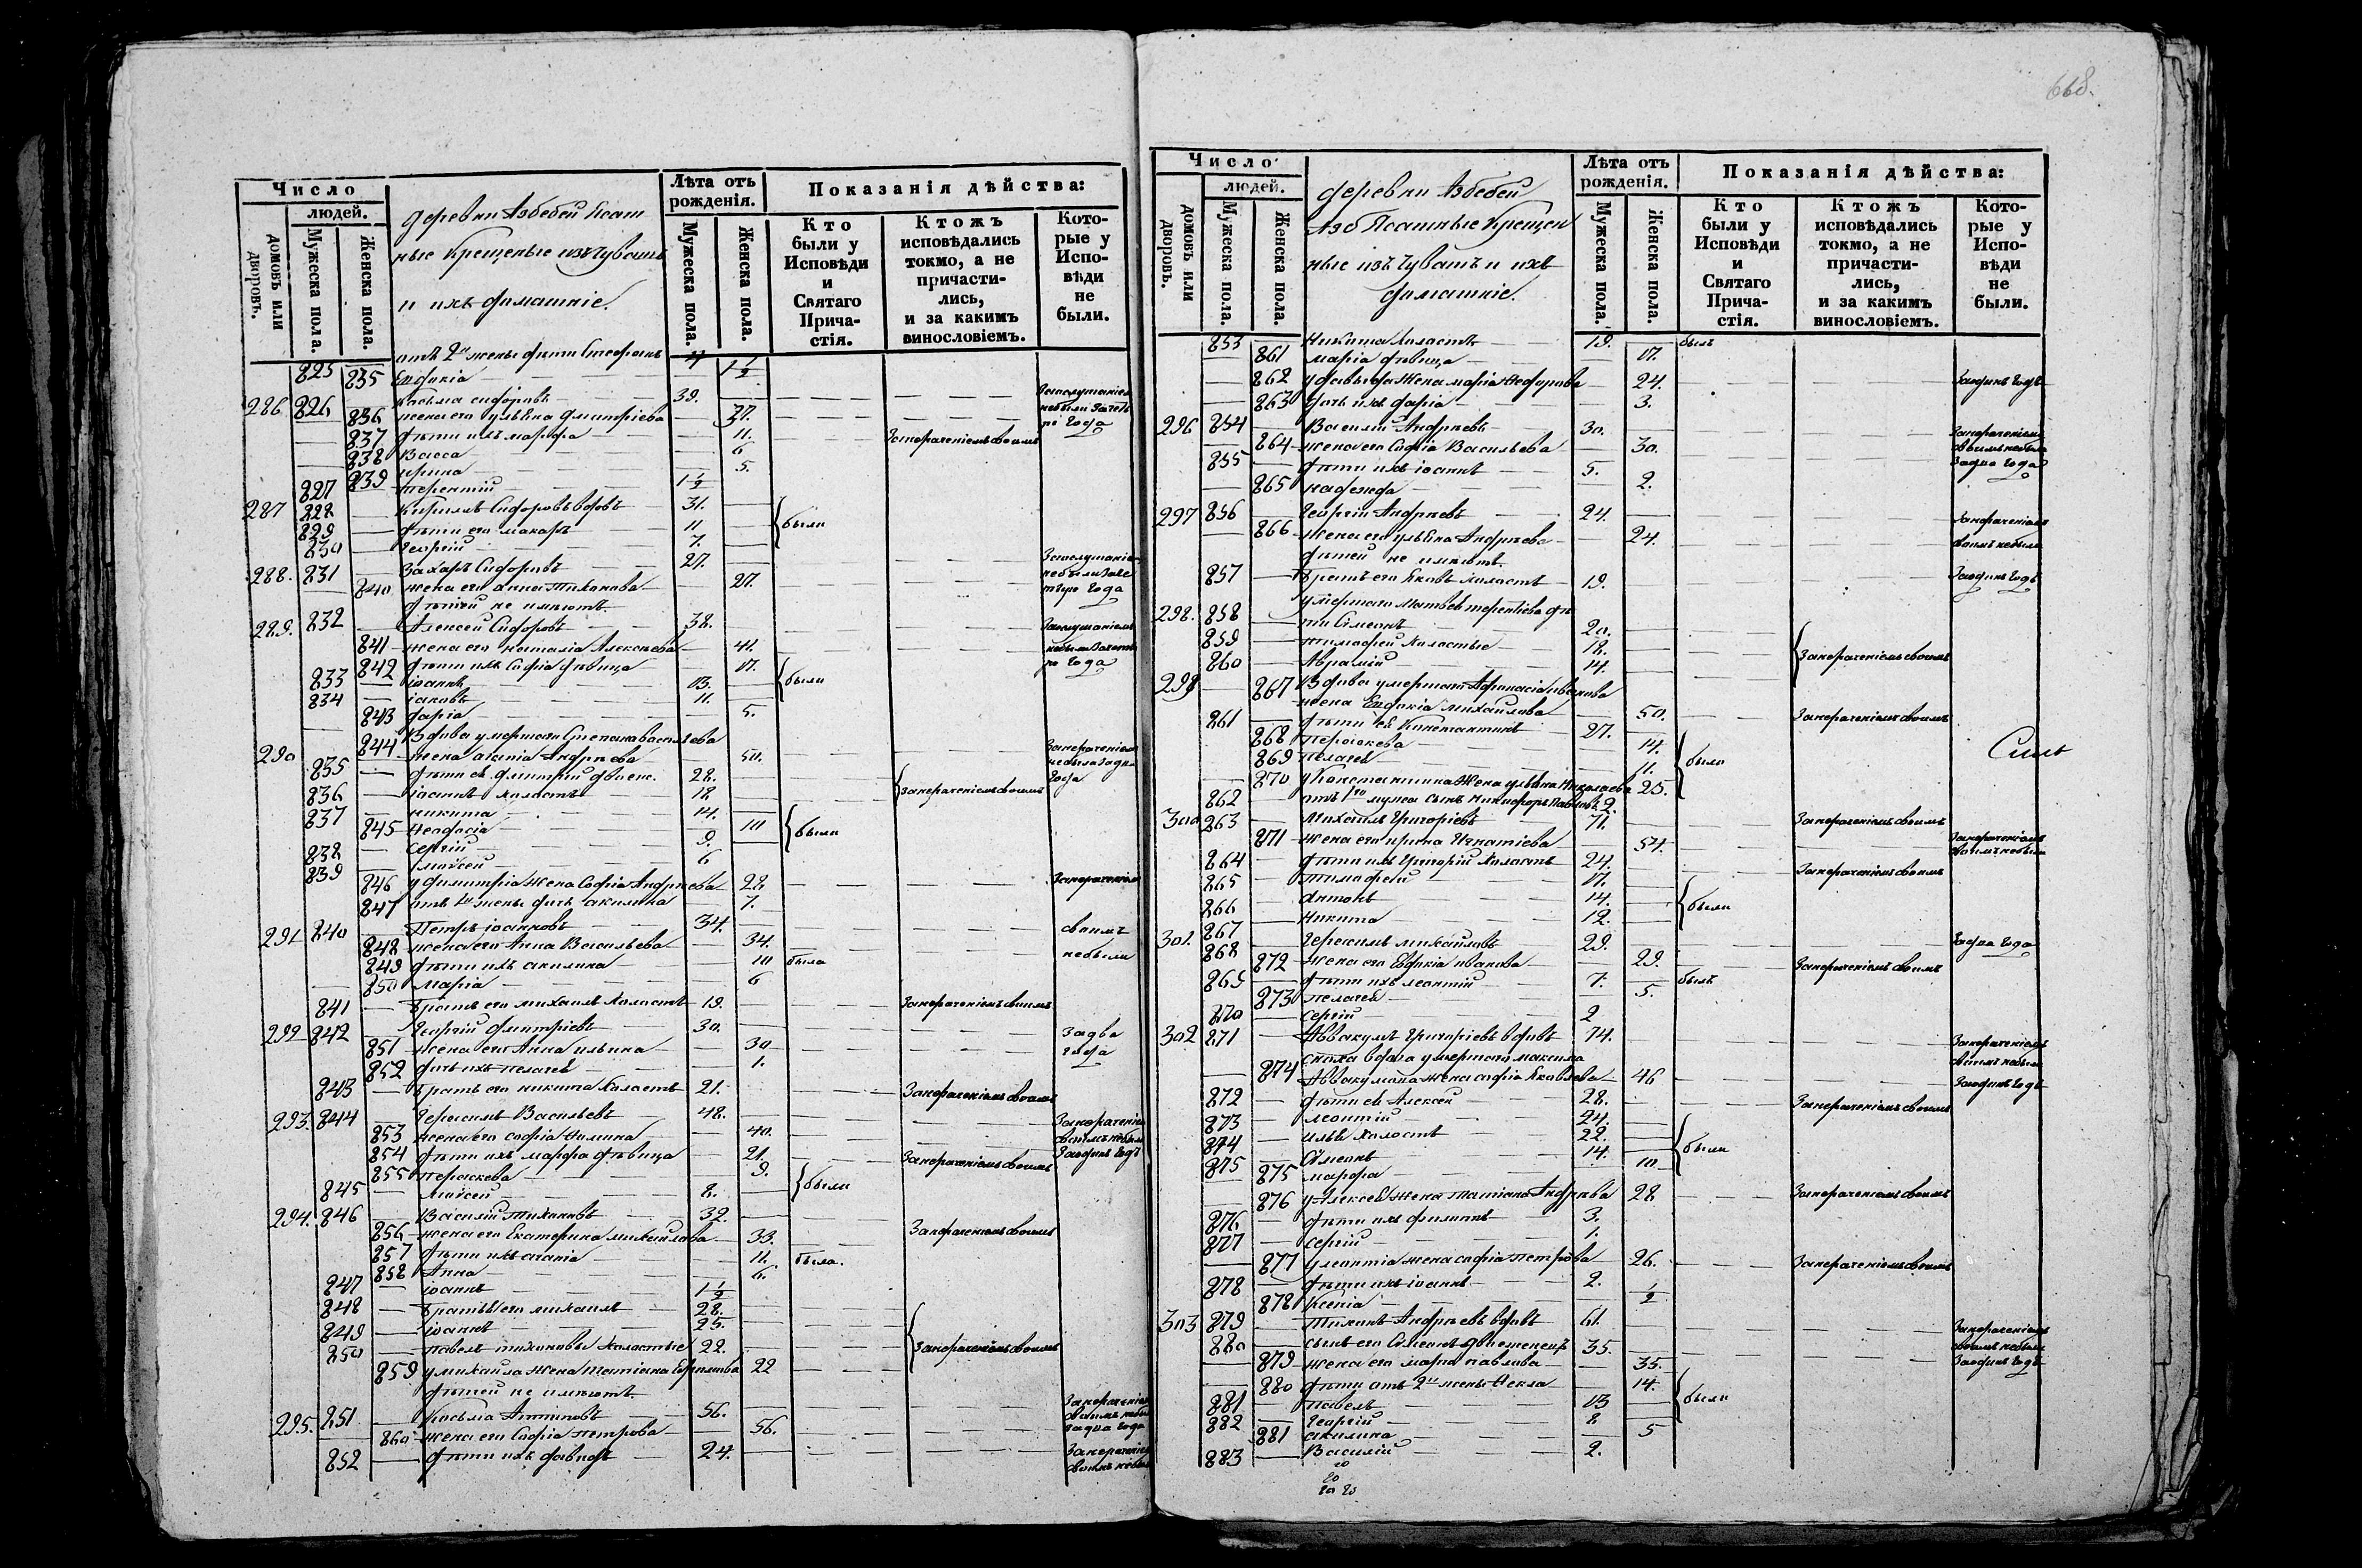 668.
Число
людей.
домовъ или дворовъ.
Мужеска пола.
Женска пола.
деревни Азбебей Ясаш
ные крещеные изъ чувашъ
и ихъ домашніе.
Лѣта отъ рожденія.
Мужеска пола.
Женска пола.
Показанія дѣйства:
Кто были у Исповѣди и Святаго Прича-стія.
Ктожъ исповѣдались токмо, а не причасти-лись, и за какимъ винословіемъ.
Кото-рые у Испо-вѣди не были.
825 отъ 2й жены дѣти Стефанъ
835 Евдокія 1½
286 826 Касьма Сидоровъ 39.
836 жена его Ульяна Дмитріева 37.
837 дѣти ихъ Марфа 11. Занерачениемъ своимъ
838 Васса 6
839 Ирина 5.
827 Терентій 1½
287 828 Кирилъ Сидоровъ вдовъ 31.
829 дѣти его Макаръ 11 были
830 Георгій 7.
288. 831 Захаръ Сидоровъ 27.
840 жена его Анна Тихонова 27.
дѣтей не имѣютъ.
289. 832 Алексей Сидоровъ 38.
841 жена его Наталія Алексѣева 41.
842 дѣти ихъ Софія дѣвица 17.
833 Іоаннъ 13. были
834 Іаковъ 11.
843 Дарія 5.
Вдова умершаго Степана Васильева
290 844 жена Агапія Андреева 50.
835 дѣти ея Димитрій двоеж. 28.
836 Іоаннъ холостъ 18 занерачениемъ своимъ
837 Никита 14.
845 Феодосія 10 были
838 Сергій 9.
839 Моисей 6
846 у Димитрія жена Софія Андреева 28.
847 отъ 1й жены дочь Акилина 7.
291 840 Петръ Іоанновъ 34. своимъ
848 жена его Анна Васильева 34.
849 дѣти ихъ Акилина 10 была небыли
850 Марія 6
841 Братъ его Михаилъ холостъ 19. Занерачениемъ своимъ
292 842 Георгій Дмитріевъ 30. За два
851 жена его Анна Ильина 30 года
852 дочь ихъ Пелагея 1.
843 Братъ его Никита холостъ 21. Занерачениемъ своимъ
293. 844 Герасимъ Васильевъ 48.
853 жена его Софія Фомина 40.
854 дѣти ихъ Марфа дѣвица 21. Занерачениемъ своимъ
855 Параскева 9.
845 Моисей 8. были
294. 846 Василій Тихоновъ 32.
856 жена его Екатерина Михайлова 33. Занерачениемъ своимъ
857 дѣти ихъ Агапія 11. была.
858 Анна 6.
847 Іоаннъ 1½
848 Братья его Михаилъ 28.
849 Іоаннъ 25.
850 Павелъ Тихоновы холостые 22. Занерачениемъ своимъ
859 у Михайла жена Татіана Ефимова 22
дѣтей не имѣютъ
295. 851 Касьма Антиповъ 56.
860 жена его Софія Петрова 56.
852 дѣти ихъ Давидъ 24.
Число
людей.
домовъ или дворовъ.
Мужеска пола.
Женска пола.
деревни Азбебей
Ясашные Крещен
ные изъ чувашъ и ихъ
домашніе.
Лѣта отъ рожденія.
Мужеска пола.
Женска пола.
Показанія дѣйства:
Кто были у Исповѣди и Святаго Прича-стія.
Ктожъ исповѣдались токмо, а не причасти-лись, и за какимъ винословіемъ.
Кото-рые у Испо-вѣди не были.
853 Никита холостъ 19. былъ
861 Марія дѣвица 17.
862 у Давыда жена Марія Федорова 24. За одинъ годъ
863 дочь ихъ Дарія 3.
296 854 Василій Андреевъ 30.
864 жена его Софія Васильева 30.
855 дѣти ихъ Іоаннъ 5. За два года
865 Надежда 2.
297 856 Георгій Андреевъ 24.
866 жена его Ульяна Андреева 24. своимъ небыли
дѣтей не имѣютъ.
857 Братъ его Яковъ холостъ 19. За одинъ годъ
умершаго Матвея Терентіева дѣ
298. 858 ти Симеонъ 20.
859 Тимофей холостые 18. Занерачениемъ своимъ
860 Аврамій 14.
299 867 Вдова умершаго Афанасія Иванова
жена Евдокія Михайлова 50. Занерачениемъ своимъ
861 дѣти ея Константинъ 27.
868 Параскева 14.
869 Пелагея 11. были
870 у Константина жена Ульяна Николаева 25.
862 отъ 1го мужа сынъ Никифоръ Павловъ 2.
300 863 Михаилъ Григоріевъ 71. Занерачениемъ своимъ
871 жена его Ирина Игнатіева 54.
864 дѣти ихъ Григорій холостъ 24. Занерачениемъ своимъ
865 Тимофей 17.
866 Антонъ 14. были
867 Никита 12.
301. 868 Герасимъ Михайловъ 29. За два года
872 жена его Евдокія Иванова 29. Занерачениемъ своимъ
869 дѣти ихъ Леонтій 7. былъ
873 Пелагея 5.
870 Сергій 2
302 871 Аввакумъ Григоріевъ вдовъ 74.
сноха вдова умершаго Максима
874 Аввакумова жена Софія Яковлева 46 За одинъ годъ
872 дѣти ея Алексей 28. Занерачениемъ своимъ
873 Леонтій 24.
874 Илья холостъ 22.
875 Симеонъ 14. были
875 Марфа 10
876 у Алексея жена Татіана Андреева 28 Занерачениемъ своимъ
876 дѣти ихъ Филиппъ 3.
877 Сергій 1.
877 у Леонтія жена Софія Петрова 26. Занерачениемъ своимъ
878 дѣти ихъ Іоаннъ 2.
878 Ксенія ½
303 879 Тихонъ Андреевъ вдовъ 61.
880 сынъ его Симеонъ двоеженецъ 35.
879 жена его Марія Павлова 35. За одинъ годъ
880 дѣти отъ 2й жены Фекла 14.
881 Павелъ 13 были
882 Георгій 8
881 Акилина 5
883 Василій 2.